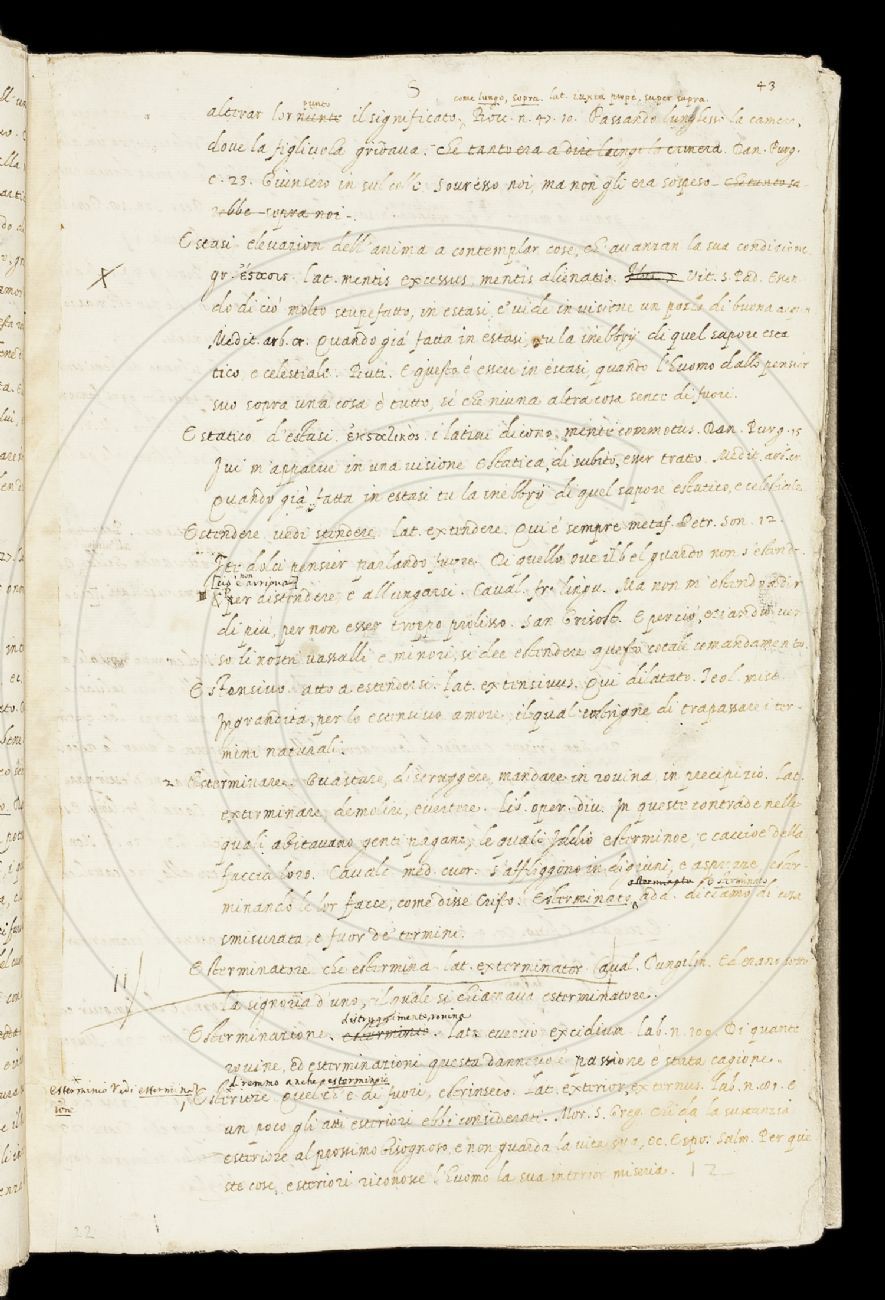 S
43
come lungo, sopra. lat. iuxta prope, super supra.
punto
alterar lor niente il significato. Nov. n. 47. 10. Passando lunghesso la camera,
dove la figliuola gridava. che tanto era a dire lungo la camera. Dan. Purg.
c. 23. Giunsero in sul colle Sovresso noi, ma non gli era sospeso. che tanto sa-
rebbe sopra noi.
Estasi elevazion dell'anima a contemplar cose, ch'avanzan la sua condizione
gr. ἔκστασις. lat. mentis excessus, mentis alienatio. Vit. S. Pad. Essen-
do di ciò molto stupefatto, in estasi, e vide in visione un pozzo di buona acqua
Medit. arb. cr. Quando già fatta in estasi, tu la inebbrij di quel sapore esta
tico, e celestiale. Buti. E questo è essere in estasi, quando l'huomo dallo pensier
suo sopra una cosa è tutto, sì che niuna altra cosa sente di fuori.
Estatico d'estasi. ἐκστατικός. i latini dicono. mente commotus. Dan. Purg. 15
Ivi m'apparve in una visione Estatica di subito, esser tratto. Medit. arb. cr.
Quando già fatta in estasi tu la inebbrij di quel sapore estatico, e celestiale
Estendere vedi stendere. lat. extendere, Qui è sempre metaf. Petr. Son. 12
I tei dolci pensier parlando fuore. Di quello, ove il bel guardo non s'estende.
cioè non arriva
X Per distendere, e allungarsi. Caval. fr. lingu. Ma non m'estendo a dir
di più, per non esser troppo prolisso. San Grisost. E perciò, eziandio ver
so li nostri vassalli e minori, si dee estendere questo cotale comandamento.
Estensivo. atto a estendersi. Lat. extensivus. Qui dilatato. Teol. mist.
Ingrandita, per lo estensivo amore, il qual costrigne di trapassare i ter-
mini naturali.
2 Esterminare. Guastare, distruggere, mandare in rovina, in precipizio. Lat.
exterminare, demolire, evertere. Lib. oper. div. In queste contrade nelle
quali abitavano genti pagane, le quali Iddio esterminoe, e caccioe della
faccia loro. Cavalc. med. cuor. S'affliggono in digiuni, e asprezze, ester-
minando le lor facce, come disse Cristo. Esterminato add. diciamo di cosa
smisurata, e fuor de' termini.
Esterminatore che estermina. lat. exterminator. Caval. Pungilin. Ed erano sotto
11
la signoria d'uno, il quale si chiamava esterminatore.
distruggimento, rovina
Esterminazione. lat. excidium. Lab. n. 109. Di quante
rovine, ed esterminazioni questa dannevole passione è stata cagione.
diremmo anche esterminio
Esterminio Vedi esterminaz
ione
Esteriore Quel ch'è di fuori, estrinseco. Lat. exterior, externus. Lab. n. e
un poco gli atti esteriori ebbi considerati. Mor. S. Greg. Chi dà la sustanzia
esteriore al prossimo bisognoso, e non guarda la vita sua, ec. Espos. Salm. Per que
ste cose esteriori riconosce l'huomo la sua interior miseria. 12
22